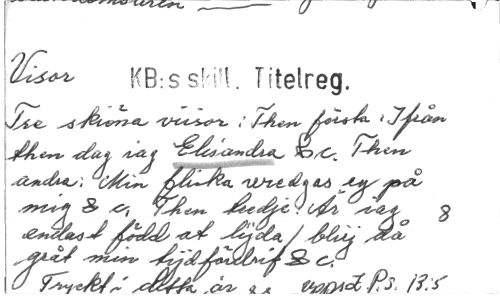 Visor KB:s skill. Titelreg.
Tre skiöna viisor: Then första: Ifrån
then dag iag Elisandra &c. Then
andra: Min flicka wredgas ey på
mig & c, Then tredje: Är iag 8
endast född at lijda / blij då
gråt min tijdfördrif &c.
Tryckt i detta år P.s. 13:5